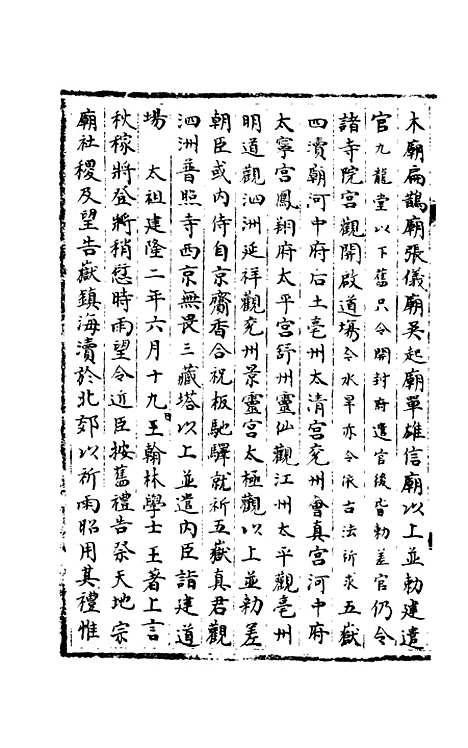 木廟扁鵲廟張儀廟吳起廟單雄信廟以上並勅建遣
官九龍堂以下舊只令開封府遣官後皆勅差官仍令
諸寺院宮觀開啟道場令水旱亦令依古法祈求五嶽
四瀆廟河中府后土亳州太清宮兖州會真宮河中府
太寧宮鳳翔府太平宮舒州靈仙觀江州太平觀亳州
明道觀泗洲延祥觀兖州景靈宮太極觀以上並勅差
朝臣或內侍自京齎香合祝板馳驛就祈五嶽真君觀
泗洲普照寺西京無畏三藏塔以上並遣內臣詣建道
場　太祖建隆二年六月十九王翰林學士王著上言
秋稼將登將稍愆時雨望令近臣按舊禮告祭天地宗
廟社稷及望告嶽鎮海瀆於北郊以祈雨昭用其禮惟